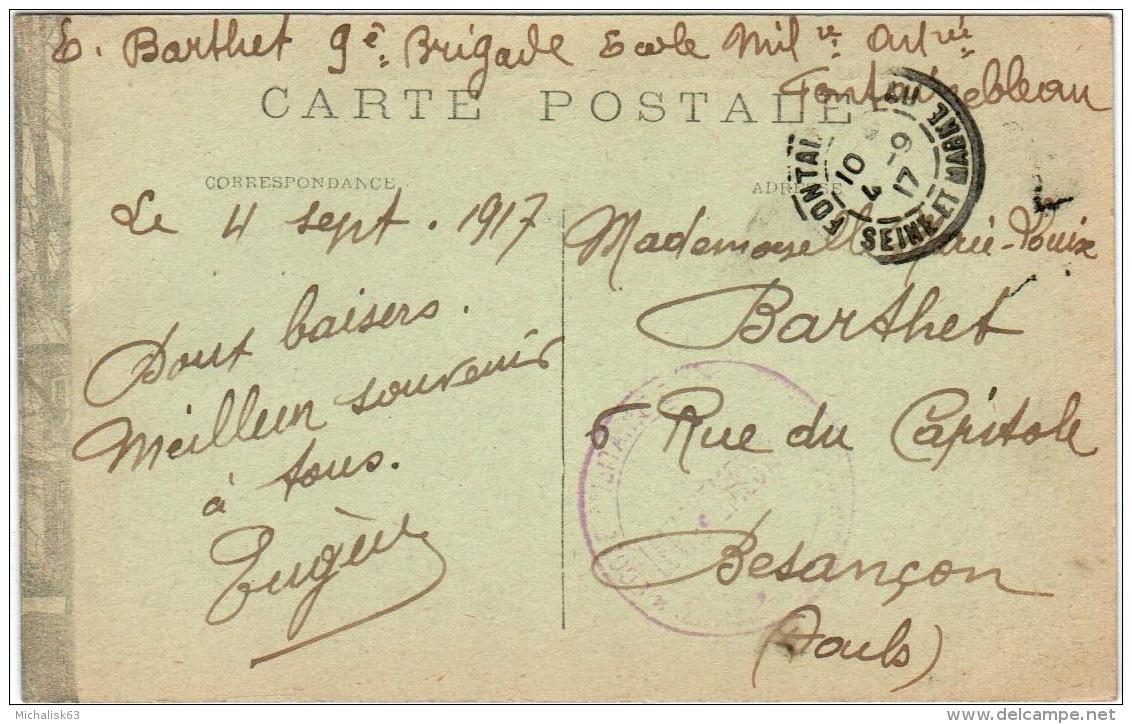 E. Barthet 9e Brigade Ecole Milre Artrie
Fontainebleau
CARTE POSTALE
CORRESPONDANCE
ADRESSE
FONTAI AU
SEINE ET MARNE
10 9
4 17
Le 4 sept. 1917
Dout baisers.
Meilleur souvenir
à tous.
Eugène
Mademoiselle Marie-Louise
Barthet
6 Rue du Capitole
Besançon
(Doubs)
Michalisk63
www.delcampe.net